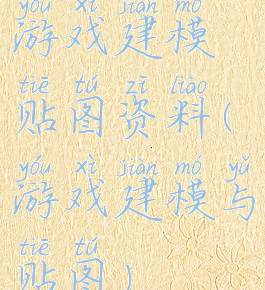 yóu xì jiàn mó
游戏建模
tiē tú zī liào
贴图资料(
yóu xì jiàn mó yǔ
游戏建模与
tiē tú
贴图)